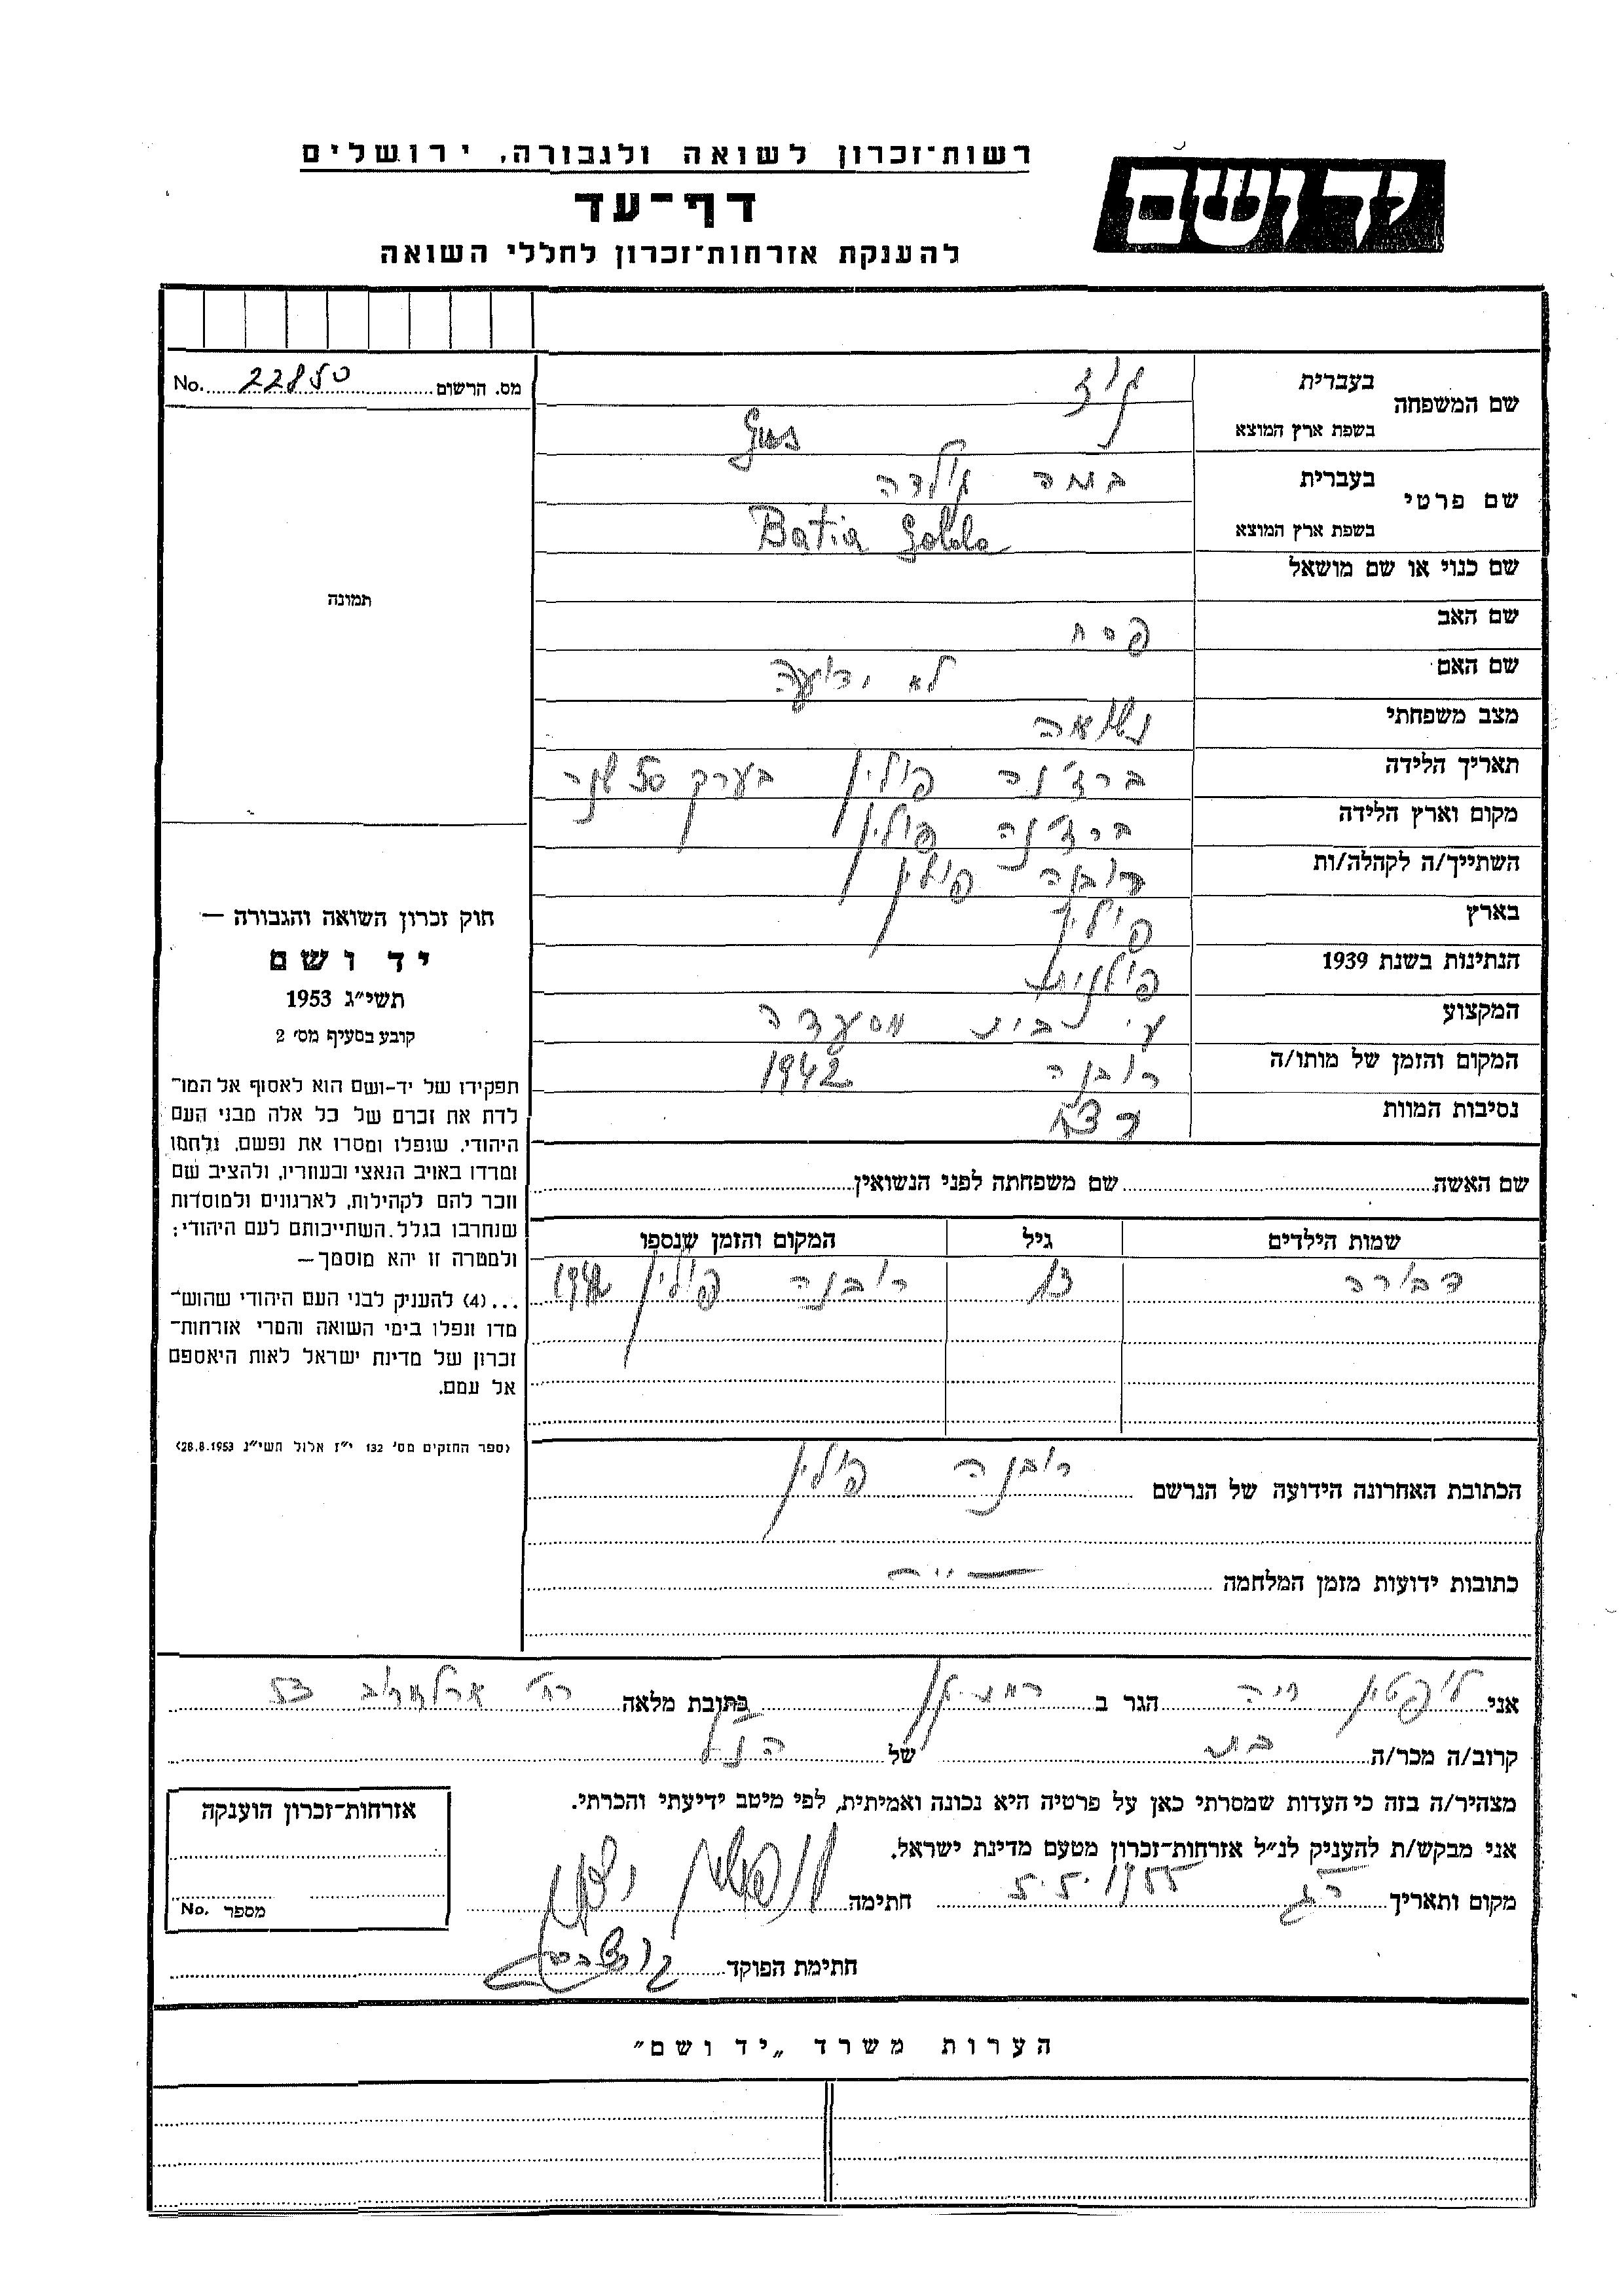 רשות־זכרון לשואה ולגבורה, ירושלים
יד ושם
דף־עד
להענקת אזרחות־זכרון לחללי השואה
מס. הרשום 22850 No.
שם המשפחה
בעברית גוז
בשפת ארץ המוצא Gus
שם פרטי
בעברית בתיה גולדה
בשפת ארץ המוצא Batia Golda
שם כנוי או שם מושאל
שם האב פסח
שם האם לא ידועה
מצב משפחתי נשואה
תאריך הלידה ברז'נה פולין בערך 50 שנה
מקום וארץ הלידה ברז'נה פולין
השתייך/ה לקהלה/ות רובנה פולין
בארץ פולין
הנתינות בשנת 1939 פולנית
המקצוע בית מסעדה
המקום והזמן של מותו/ה רובנה 1942
נסיבות המוות רצח
תמונה
חוק זכרון השואה והגבורה —
יד ושם
תשי״ג 1953
קובע בסעיף מס׳ 2
תפקידו של יד-ושם הוא לאסוף אל המו־
לדת את זכרם של כל אלה מבני העם
היהודי, שנפלו ומסרו את נפשם, נלחמו
ומרדו באויב הנאצי ובעוזריו, ולהציב שם
וזכר להם לקהילות, לארגונים ולמוסדות
שנחרבו בגלל השתייכותם לעם היהודי;
ולמטרה זו יהא מוסמך—
...(4) להעניק לבני העם היהודי שהוש־
מדו ונפלו בימי השואה והמרי אזרחות־
זכרון של מדינת ישראל לאות היאספם
אל עמם.
(ספר החוקים מס׳ 132 י״ז אלול תשי״ג 28.8.1953)
שם האשה שם משפחתה לפני הנשואין
שמות הילדים גיל המקום והזמן שנספו
דבורה 13 רובנה פולין 1942
הכתובת האחרונה הידועה של הנרשם רובנה פולין
כתובות ידועות מזמן המלחמה — " —
אני ליפשין חיה הגר ב רמת-גן כתובת מלאה רח' ארלוזרוב 53
קרוב/ה מכר/ה בת של הנ"ל
מצהיר/ה בזה כי העדות שמסרתי כאן על פרטיה היא נכונה ואמיתית, לפי מיטב ידיעתי והכרתי.
אני מבקש/ת להעניק לנ״ל אזרחות־זכרון מטעם מדינת ישראל.
מקום ותאריך ר.ג 5.5.1955 חתימה
חתימת הפוקד
אזרחות-זכרון הוענקה
מספר No.
הערות משרד „יד ושם״